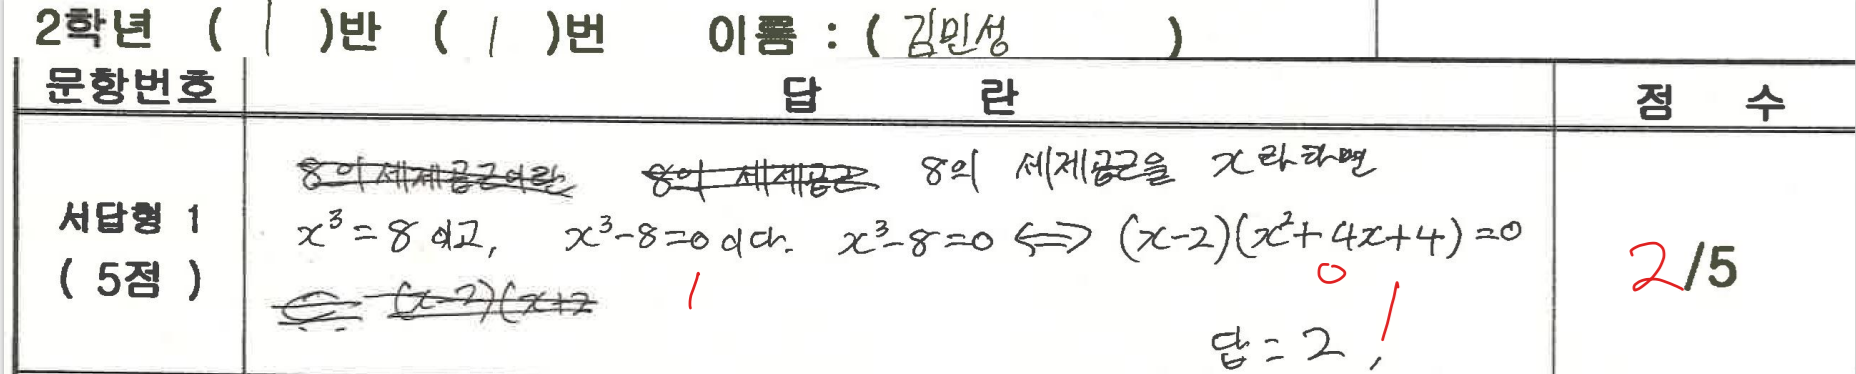 2학년 ( 1 )반 ( 1 )번 이름 : ( 김민성 )
문항번호 답 란 점 수
서답형 1
( 5점 )
8의 세제곱근이란 8의 세제곱근 8의 세제곱근을 x라 하면
x³=8 이고, x³-8=0 이다. x³-8=0 ⟺ (x-2)(x²+4x+4)=0
1 0
(x-2)(x+2
답 = 2, 1
2/5